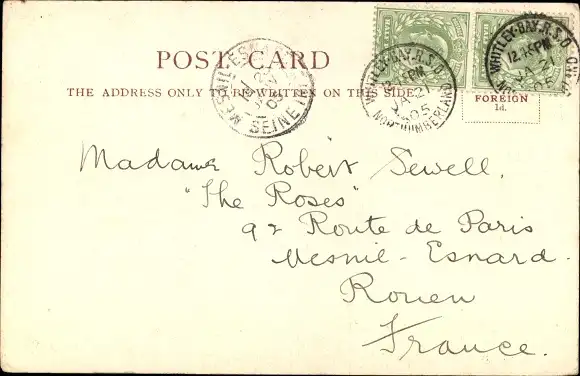 POST CARD
THE ADDRESS ONLY TO BE WRITTEN ON THIS SIDE
FOREIGN
1d.
WHITLEY-BAY.R.S.O.
12.15PM
JA 21
05
NORTHUMBERLAND
WHITLEY-BAY.R.S.O.
12.15PM
JA 21
05
MESNIL-ESNARD
SEINE
Madame Robert Sewell,
"The Roses"
92 Route de Paris
Mesnil-Esnard.
Rouen
France.